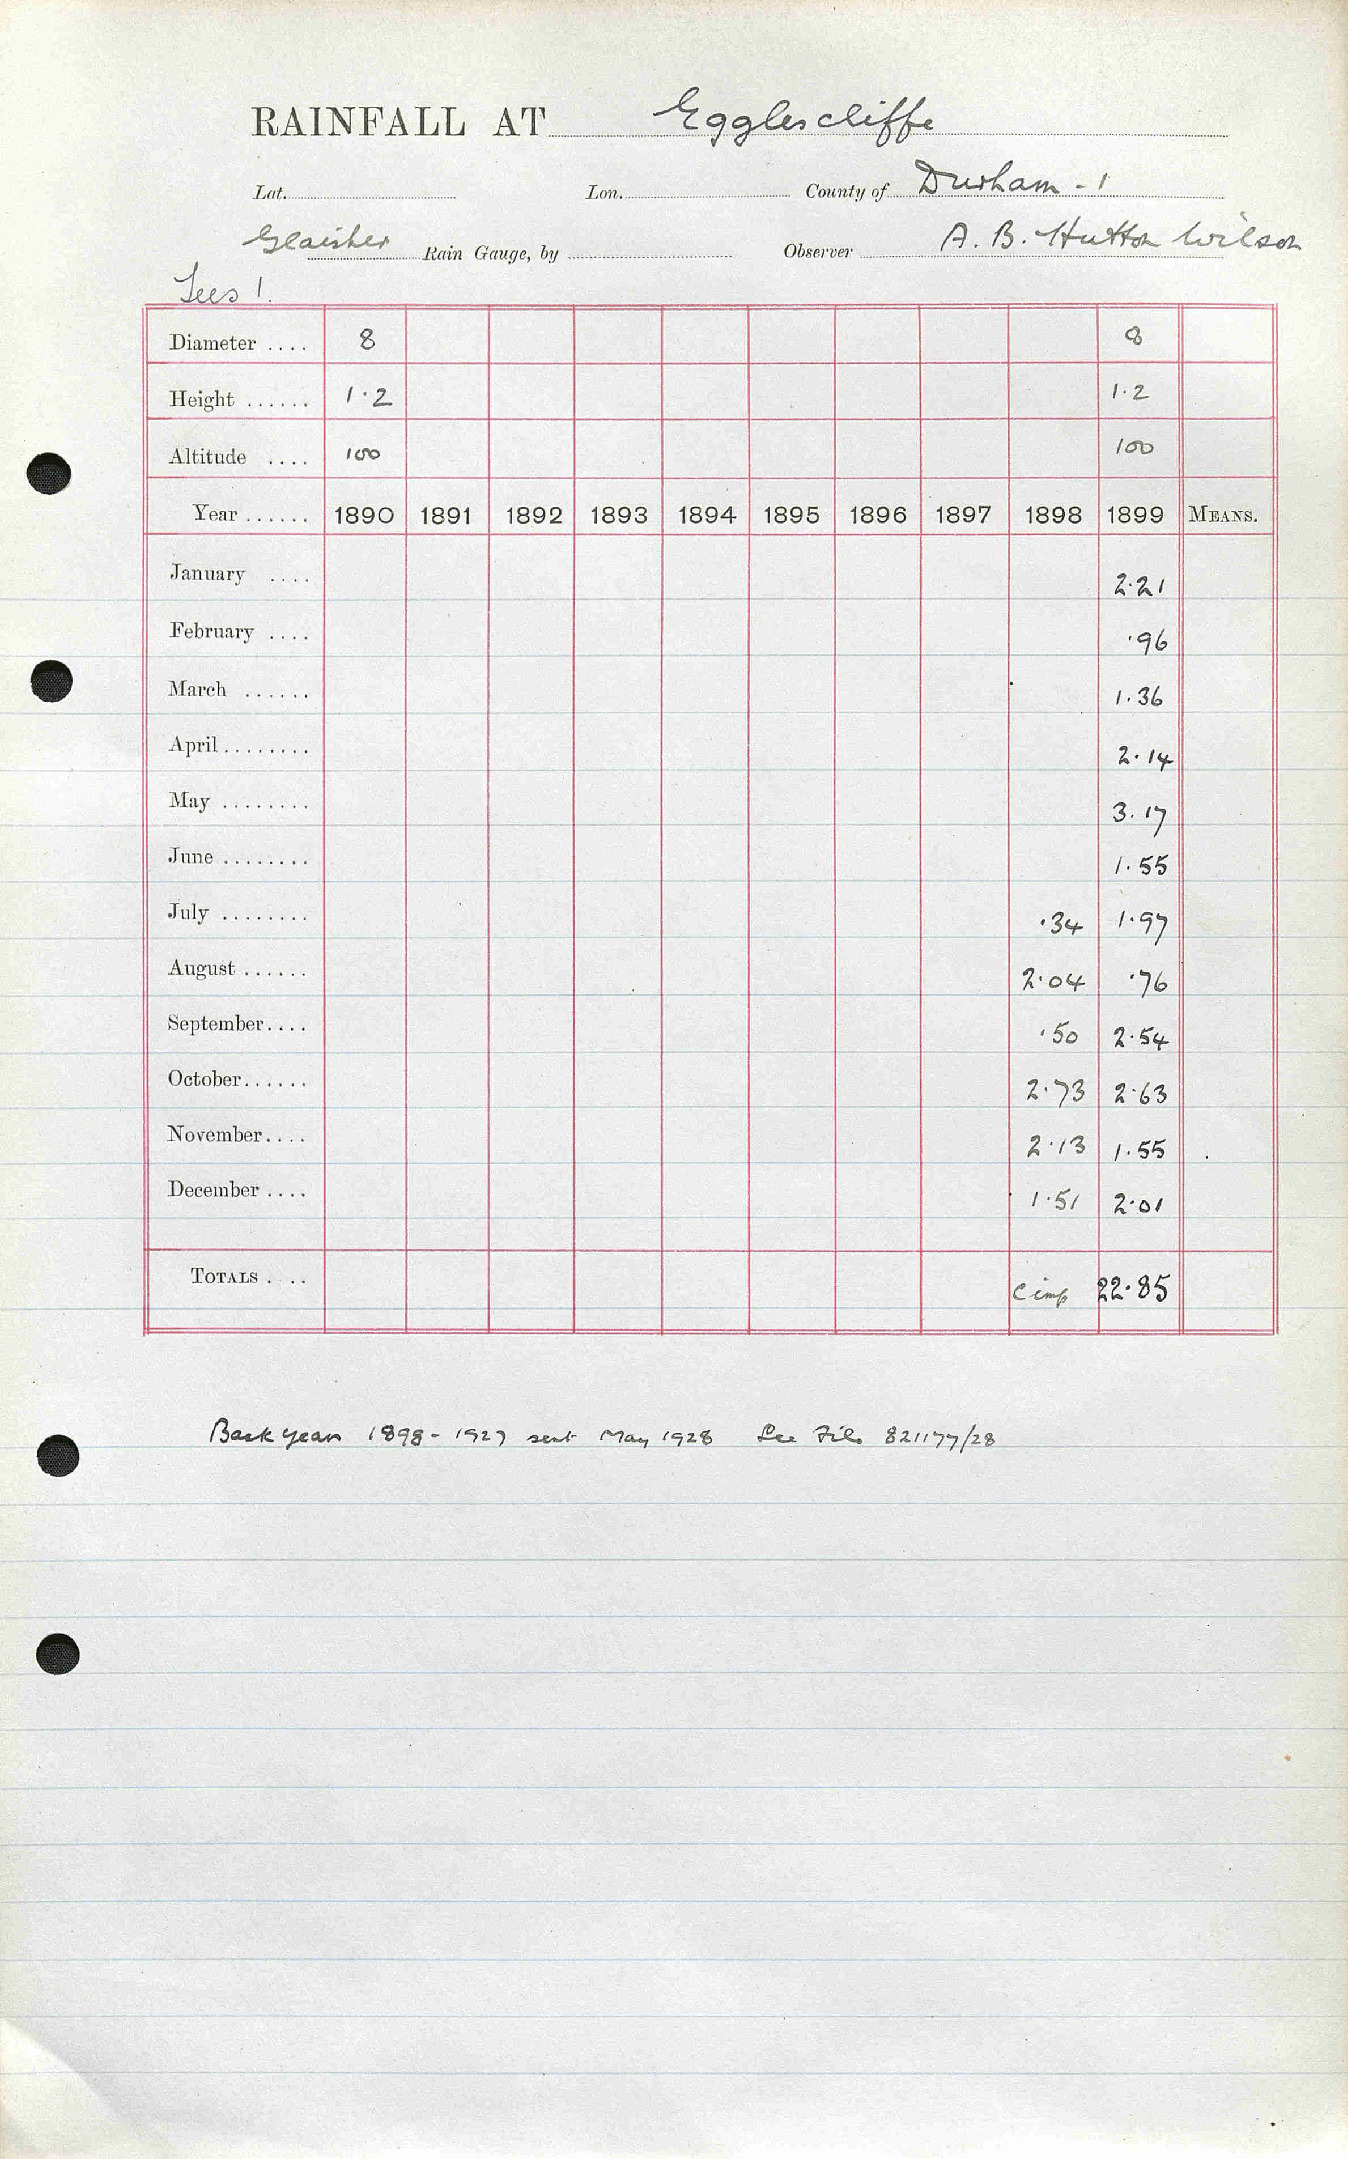 RAINFALL AT Egglescliffe
Lat. Lon. County of Durham - 1
Glaisher Rain Gauge, by Observer A. B. Hutton Wilson
Tees 1.
Diameter .... 8 8
Height ...... 1.2 1.2
Altitude .... 100 100
Year ...... 1890 1891 1892 1893 1894 1895 1896 1897 1898 1899 MEANS.
January .... 2.21
February .... .96
March ...... 1.36
April ........ 2.14
May ........ 3.17
June ........ 1.55
July ........ .34 1.97
August ...... 2.04 .76
September .... .50 2.54
October ...... 2.73 2.63
November .... 2.13 1.55
December .... 1.51 2.01
TOTALS .... 22.85
Back years 1898 - 1927 sent May 1928 See File 821177/28